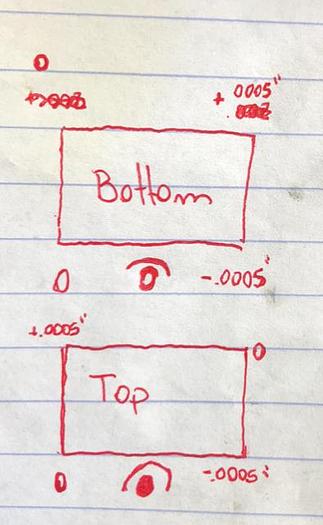 0
+ .0005"
Bottom
0 -.0005"
+.0005"
0
Top
0 -.0005"